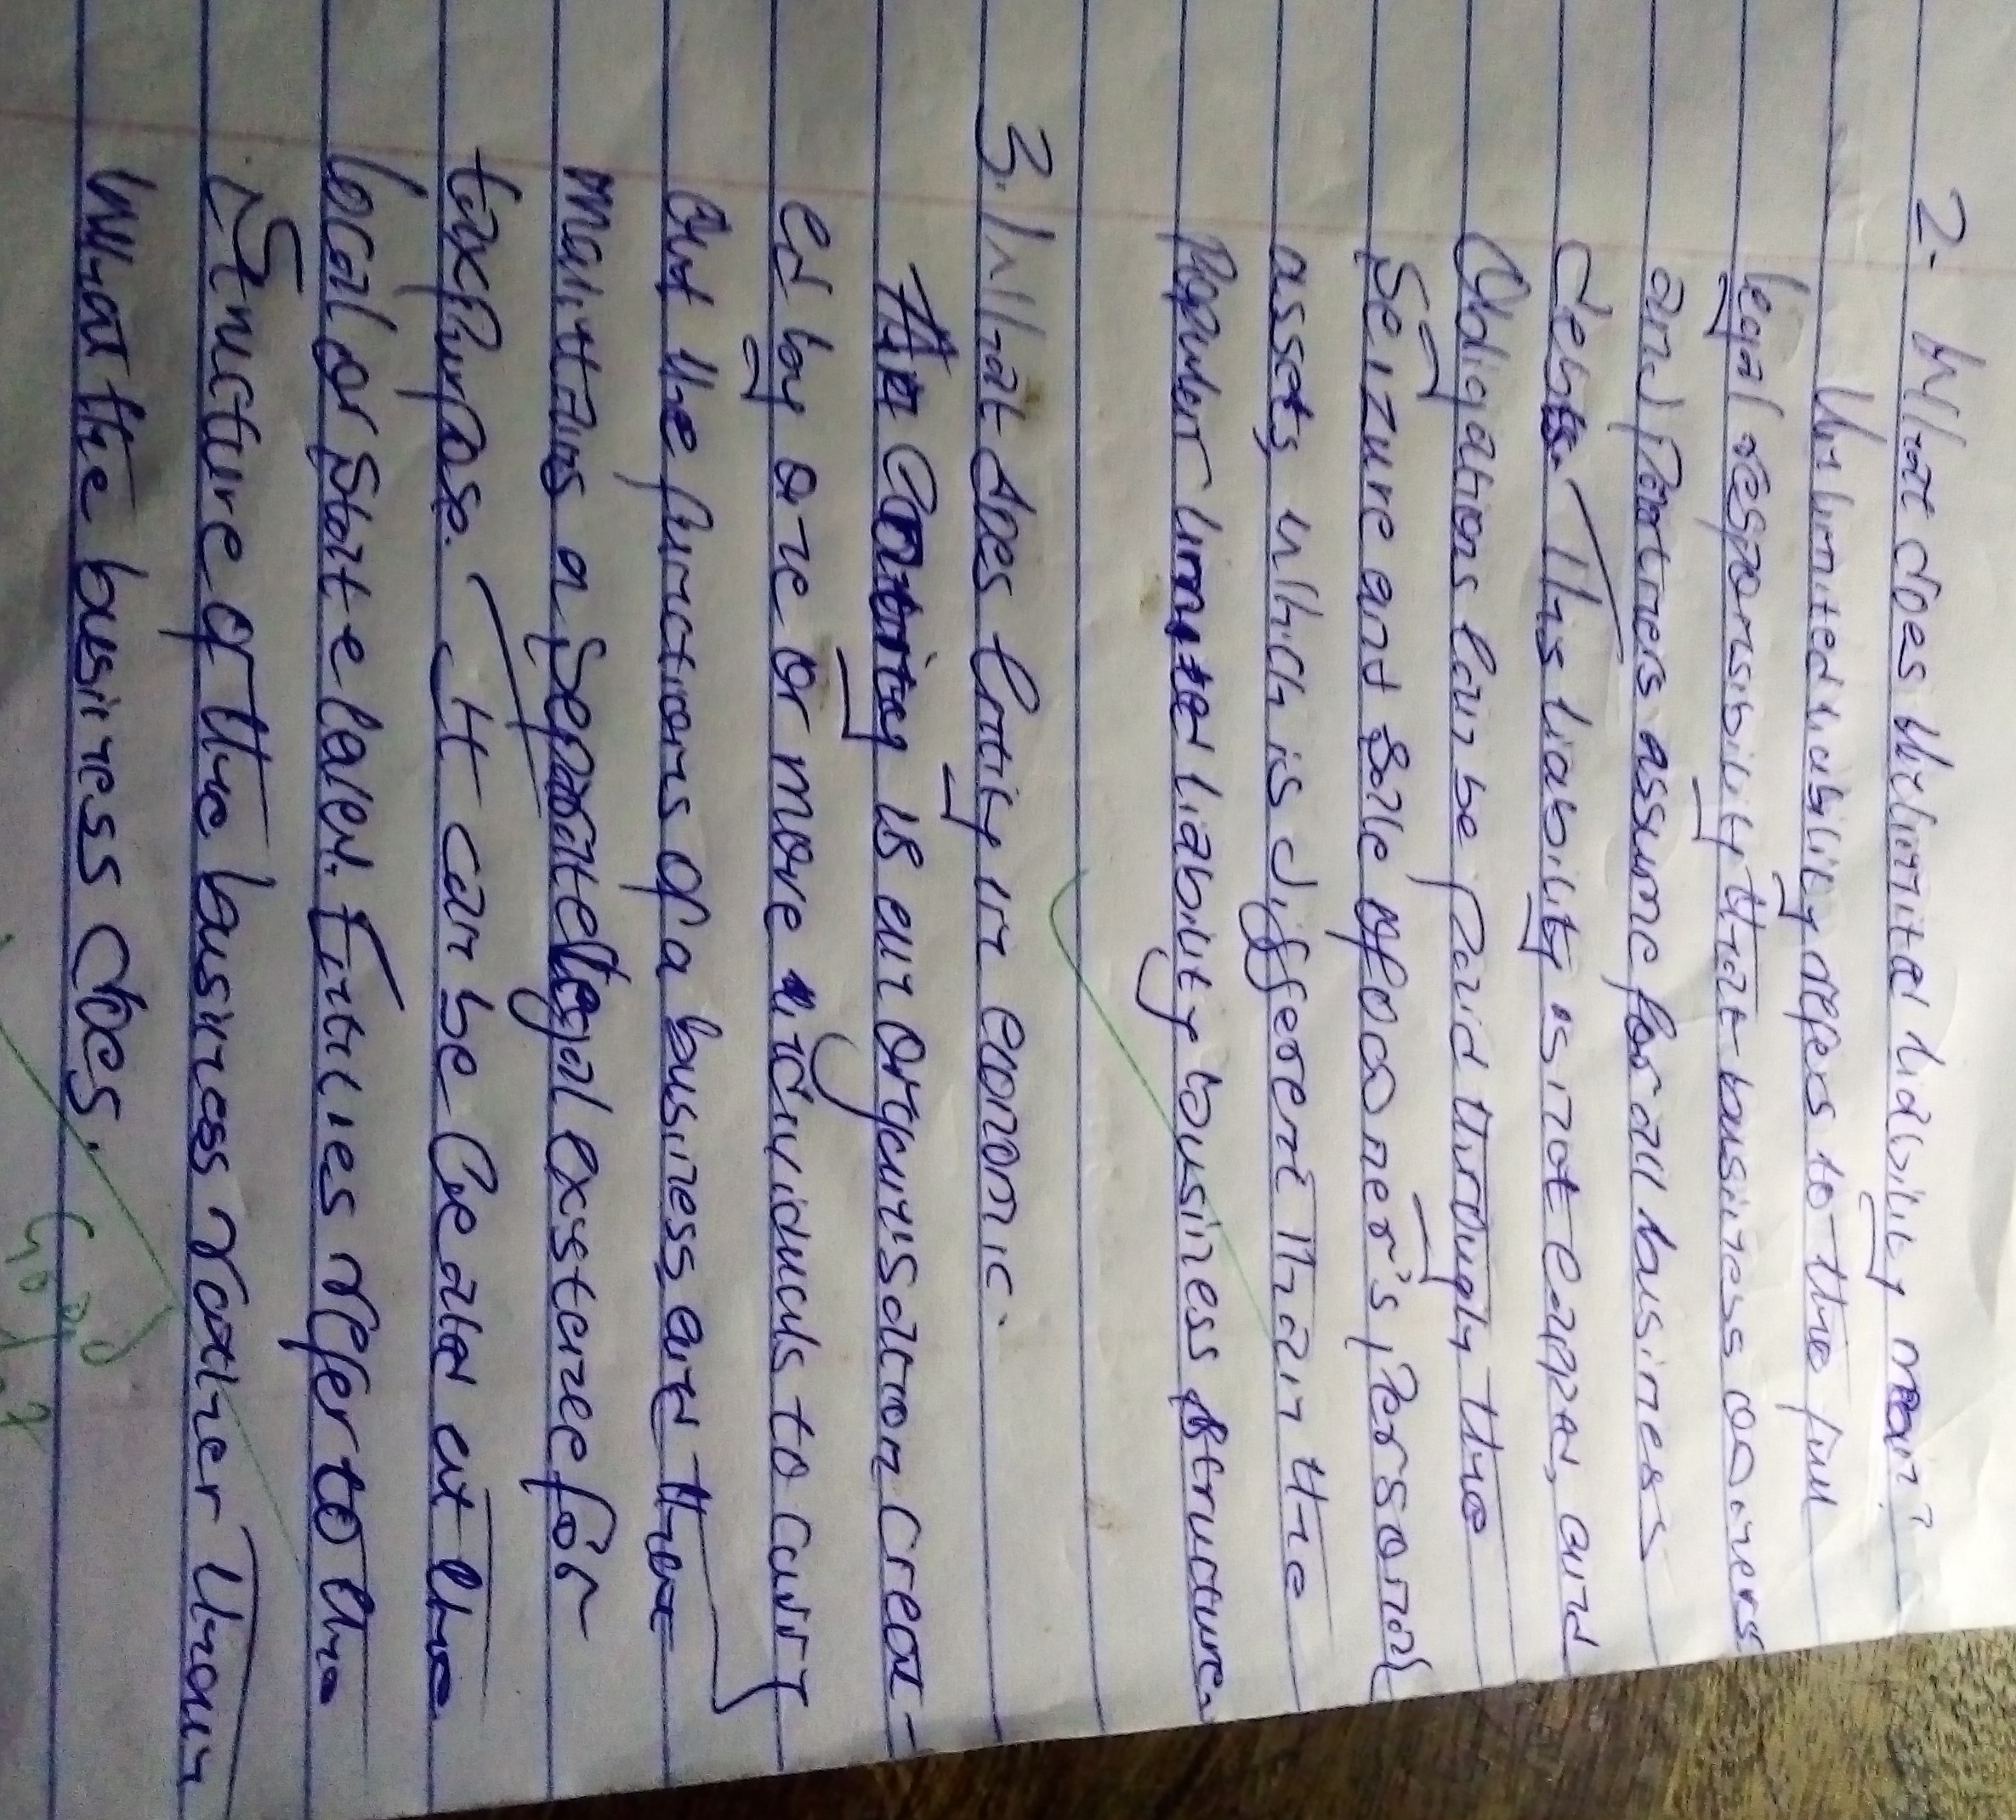 2. What does Unlimited liability mean?
Unlimited liability refers to the full
legal responsibility that business owners
and Partners assume for all business
debts. This liability is not capped, and
Obligations can be paid through the
Seizure and Sale of owner's Personal
assets, which is different than the
Popular limited liability business structure.
3. What does Entity in economic.
An Entity is an organisation creat-
ed by one or more individuals to carry
Out the functions of a business and that
maintains a Separate legal existence for
tax Purpose. It can be Created at the
local or State level. Entities refer to the
Structure of the business rather than
What the business does.
Good